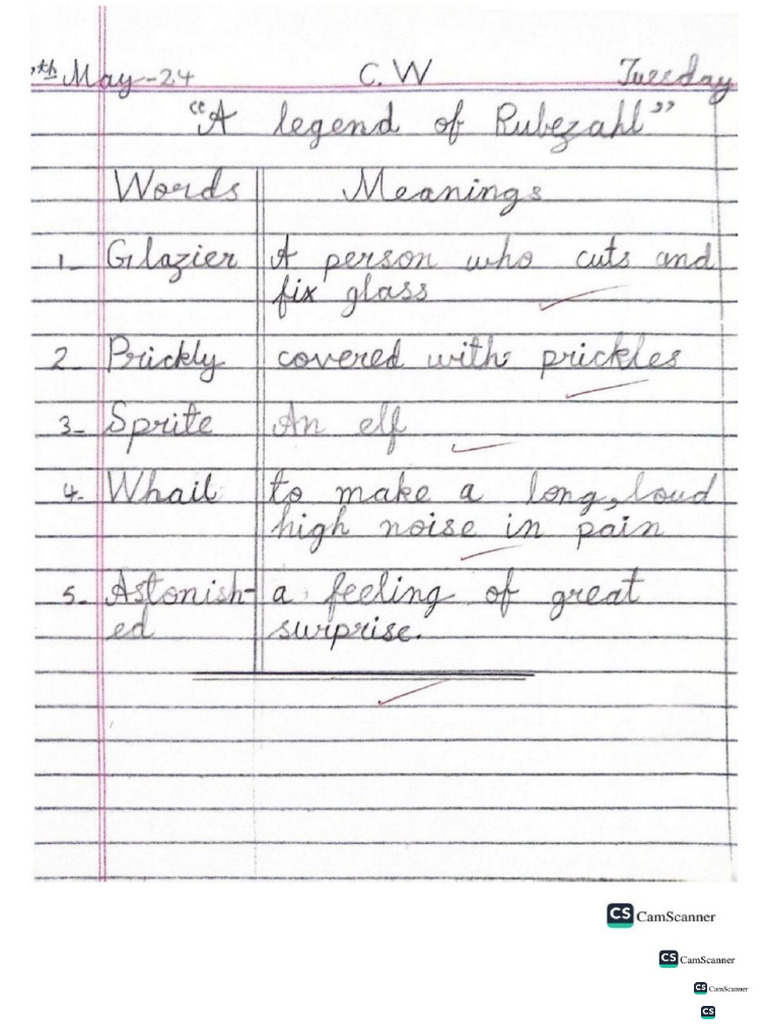 th May-24 C.W Tuesday
"A legend of Rubezahl"
Words Meanings
1- Glazier A person who cuts and
fix glass
2- Prickly covered with prickles
3- Sprite An elf
4- Whail to make a long, loud
high noise in pain
5- Astonish- a feeling of great
ed surprise.
CS CamScanner
CS CamScanner
CS CamScanner
CS